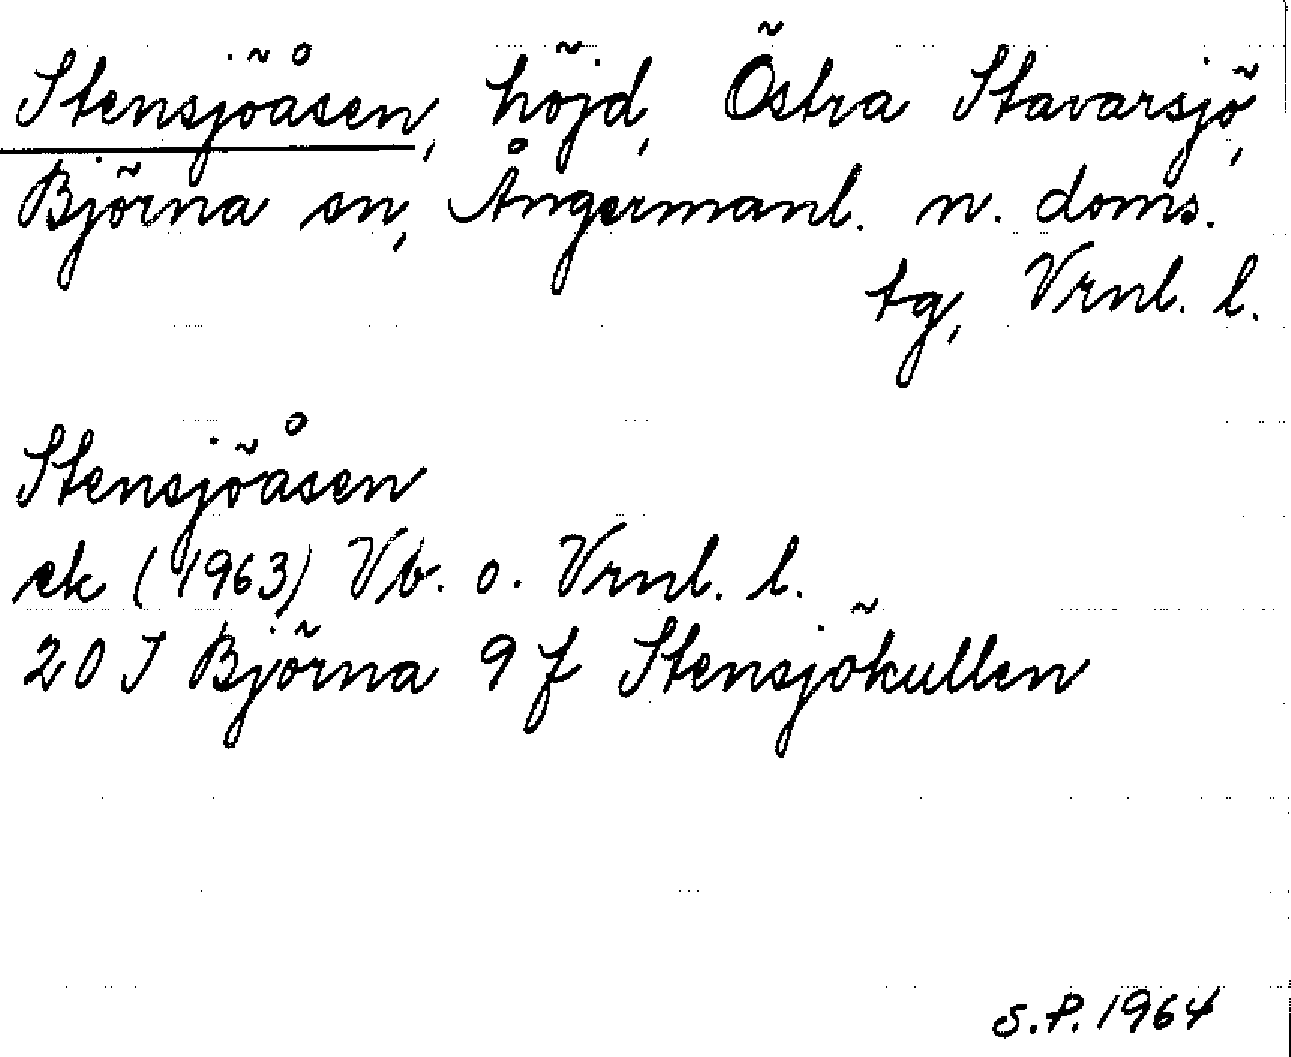 Stensjöåsen, höjd, Östra Stavarsjö,
Björna sn, Ångermanl. n. doms.
tg, Vrnl. l.
Stensjöåsen
ek (1963) Vb. o. Vrnl. l.
20 I Björna 9 f Stensjökullen
S.P. 1964